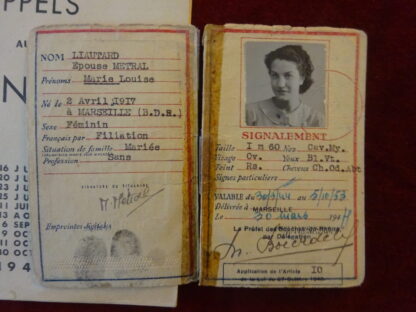 PPELS
AU
N
16 JU
JU
9 JU
6 SEP
9 OC
30 NO
194
NOM LIAUTARD
Epouse METRAL
Prénoms Marie Louise
Né le 2 Avril 1917
à MARSEILLE (B.D.R.)
Sexe Féminin
Français par Filiation
Situation de famille Mariée
Profession Sans
SIGNATURE DU TITULAIRE
M Metral
Empreintes digitales
SIGNALEMENT
Taille 1 m 60 Nez Cav.My.
Visage Ov. Yeux Bl.Vt.
Teint Rs. Cheveux Ch.Od.Abt
Signes particuliers
VALABLE DU au 5/10/53
Délivrée à MARSEILLE
Le 30 mars 194
Le Préfet des Bouches-du-Rhône
par Délégation
Application de l'Article 10
de la Loi du 27 Octobre 1940